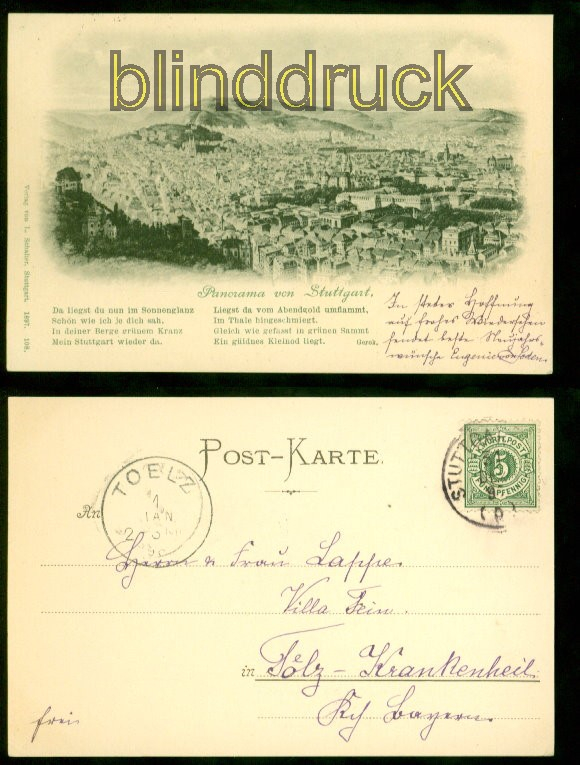 blinddruck
Panorama von Stuttgart.
Da liegst du nun im Sonnenglanz
Schön wie ich je dich sah,
In deiner Berge grünem Kranz
Mein Stuttgart wieder da.
Liegst da vom Abendgold umflammt,
Im Thale hingeschmiegt.
Gleich wie gefasst in grünen Sammt
Ein güldnes Kleinod liegt. Gerok.
In steter Hoffnung
auf frohes Wiedersehen
sendet beste Neujahrs-
wünsche Eugenie
Verlag von Stuttgart. 1897. 108.
POST-KARTE.
STUTT
K. WÜRTT. POST
5
PFENNIG
TOELZ
1
JAN
2
An
Herrn u Frau Lappe.
Villa Fein.
in Tölz-Krankenheil.
Kch Bayern.
frei